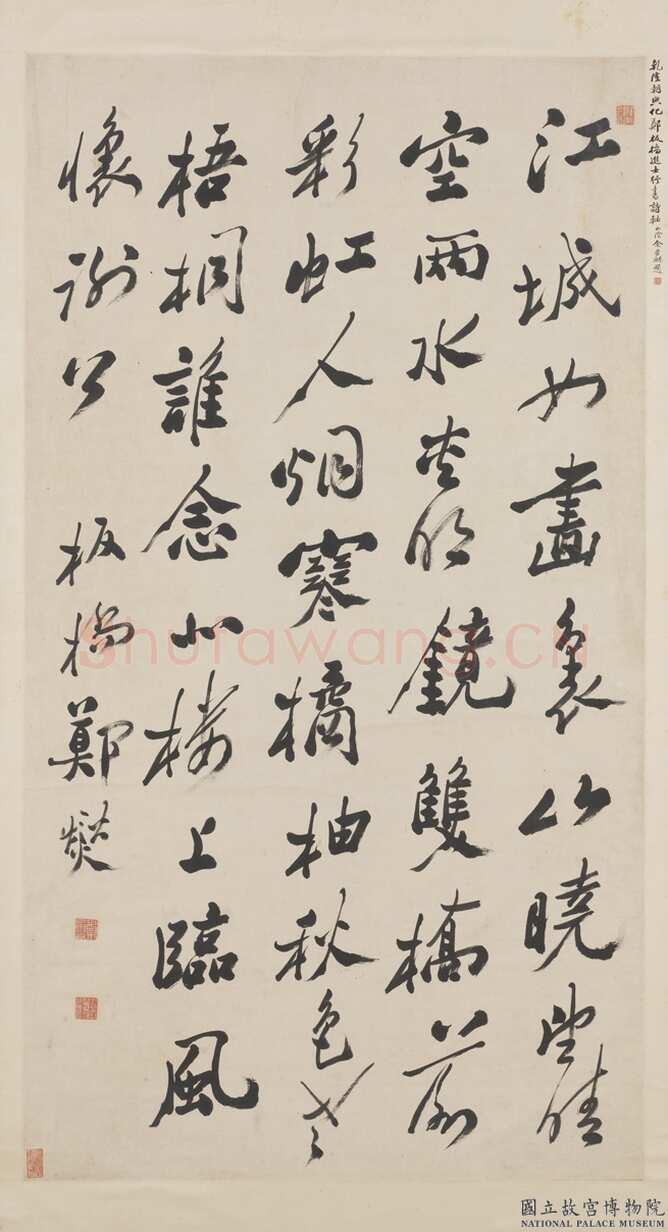 乾隆朝興化鄭板橋進士行書詩軸
江城如畫裏山曉望晴
空兩水夾明鏡雙橋落
彩虹人烟寒橘柚秋色老
梧桐誰念北樓上臨風
懷謝公 板橋鄭燮
Shufawang.cn
國立故宮博物院
NATIONAL PALACE MUSEUM